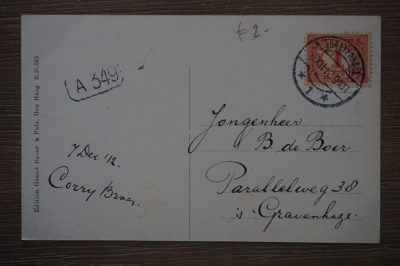 f 2-
A 349
7 Dec '12
Corry
Jongenheer
B de Boer
Parallelweg 38
's Gravenhage
Edition Grand Bazar ★ Pala, Den Haag